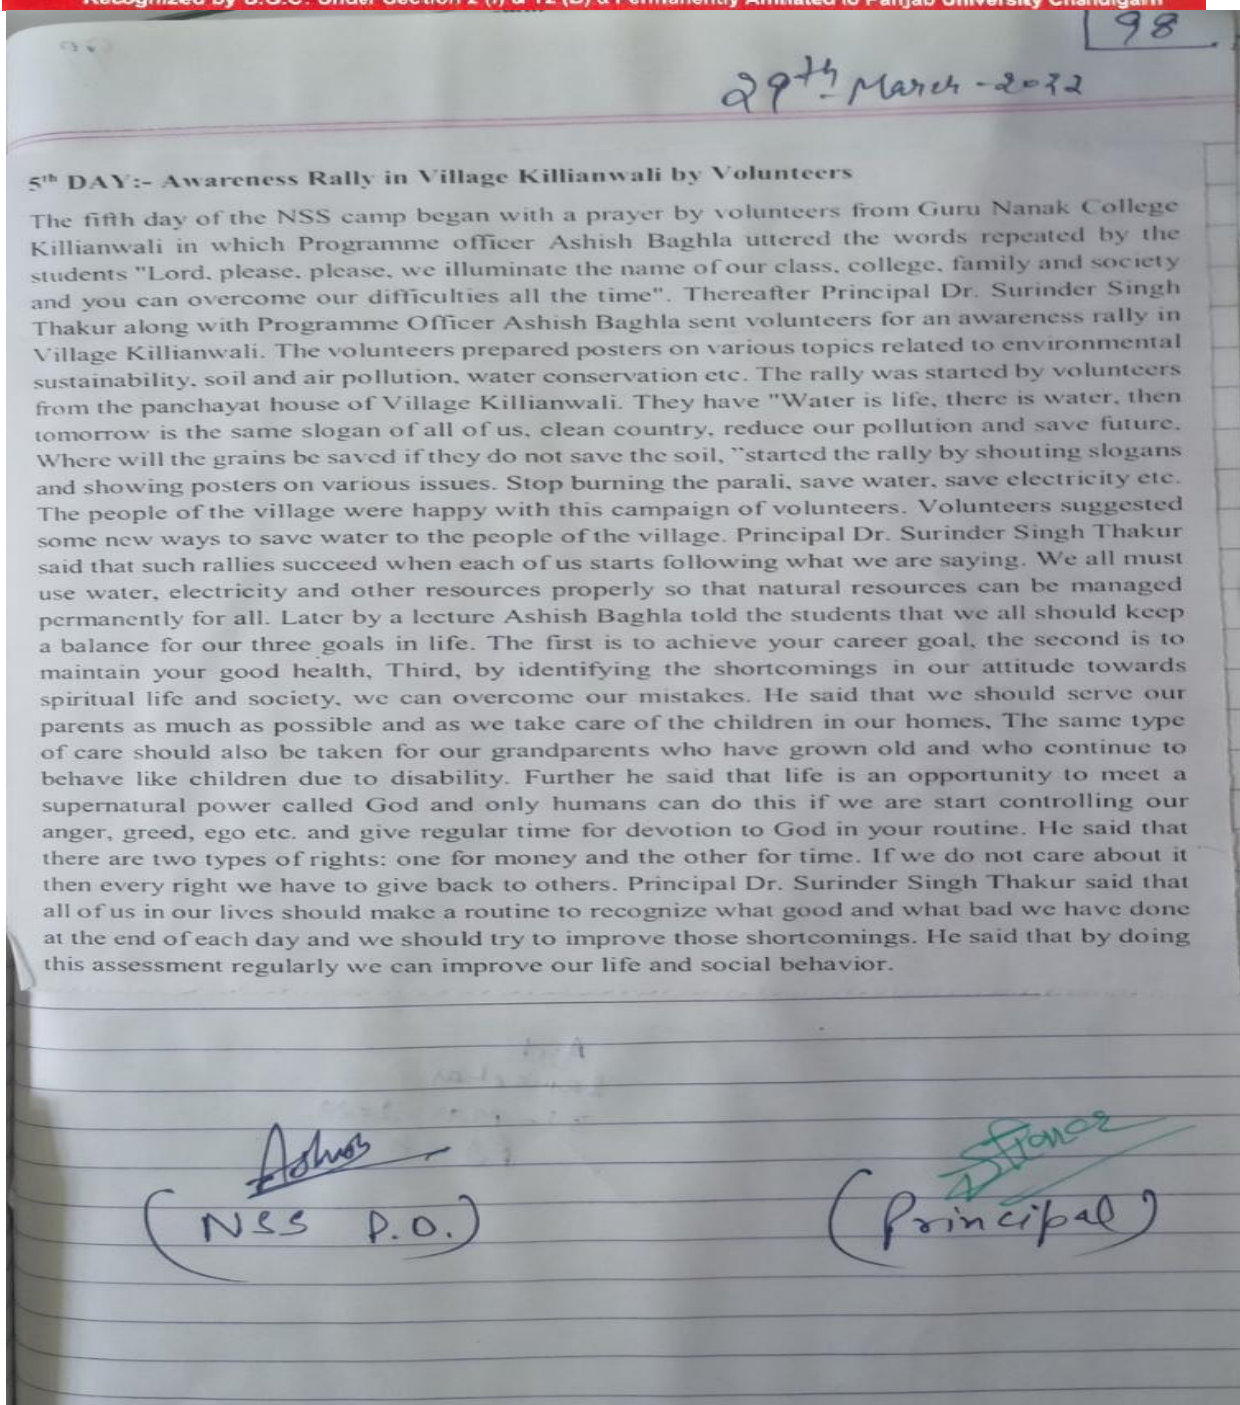 Recognized by U.G.C. Under Section 2 (f) & 12 (B) & Permanently Affiliated to Panjab University Chandigarh
98
29th March - 2022
5th DAY:- Awareness Rally in Village Killianwali by Volunteers
The fifth day of the NSS camp began with a prayer by volunteers from Guru Nanak College
Killianwali in which Programme officer Ashish Baghla uttered the words repeated by the
students "Lord, please, please, we illuminate the name of our class, college, family and society
and you can overcome our difficulties all the time". Thereafter Principal Dr. Surinder Singh
Thakur along with Programme Officer Ashish Baghla sent volunteers for an awareness rally in
Village Killianwali. The volunteers prepared posters on various topics related to environmental
sustainability, soil and air pollution, water conservation etc. The rally was started by volunteers
from the panchayat house of Village Killianwali. They have "Water is life, there is water, then
tomorrow is the same slogan of all of us, clean country, reduce our pollution and save future.
Where will the grains be saved if they do not save the soil, "started the rally by shouting slogans
and showing posters on various issues. Stop burning the parali, save water, save electricity etc.
The people of the village were happy with this campaign of volunteers. Volunteers suggested
some new ways to save water to the people of the village. Principal Dr. Surinder Singh Thakur
said that such rallies succeed when each of us starts following what we are saying. We all must
use water, electricity and other resources properly so that natural resources can be managed
permanently for all. Later by a lecture Ashish Baghla told the students that we all should keep
a balance for our three goals in life. The first is to achieve your career goal, the second is to
maintain your good health, Third, by identifying the shortcomings in our attitude towards
spiritual life and society, we can overcome our mistakes. He said that we should serve our
parents as much as possible and as we take care of the children in our homes, The same type
of care should also be taken for our grandparents who have grown old and who continue to
behave like children due to disability. Further he said that life is an opportunity to meet a
supernatural power called God and only humans can do this if we are start controlling our
anger, greed, ego etc. and give regular time for devotion to God in your routine. He said that
there are two types of rights: one for money and the other for time. If we do not care about it
then every right we have to give back to others. Principal Dr. Surinder Singh Thakur said that
all of us in our lives should make a routine to recognize what good and what bad we have done
at the end of each day and we should try to improve those shortcomings. He said that by doing
this assessment regularly we can improve our life and social behavior.
(NSS P.O.)
(Principal)